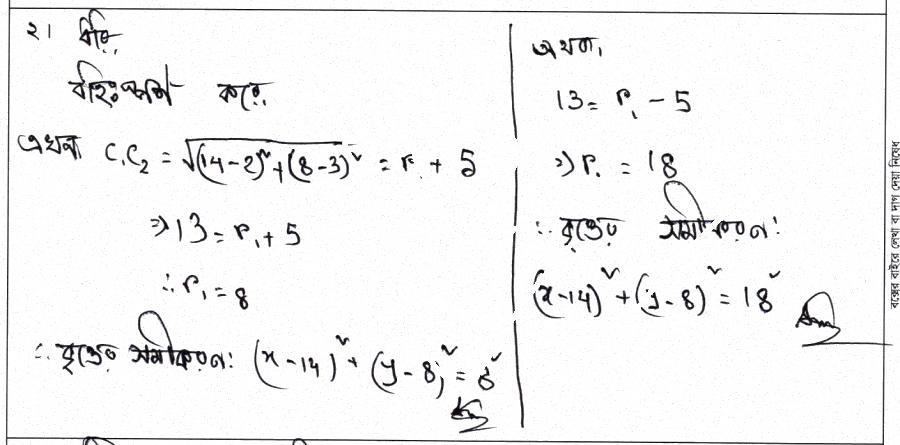 ২। ধরি,
বহিঃস্পর্শ করে,
এখন, C₁C₂ = √(14-2)² + (8-3)² = r₁ + 5
⇒ 13 = r₁ + 5
∴ r₁ = 8
∴ বৃত্তের সমীকরণ: (x-14)² + (y-8)² = 8²
Ans
অথবা,
13 = r₁ - 5
⇒ r₁ = 18
∴ বৃত্তের সমীকরণ:
(x-14)² + (y-8)² = 18²
Ans
বক্সের বাইরে লেখা বা দাগ দেয়া নিষেধ